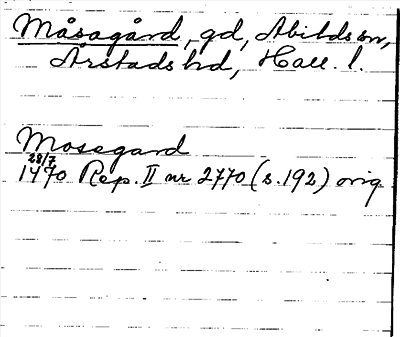 Måsagård, gd, Abilds sn,
Årstads hd, Hall. l.
Mosegard
28/7
1470 Rep. II nr 2770 (s. 192) orig